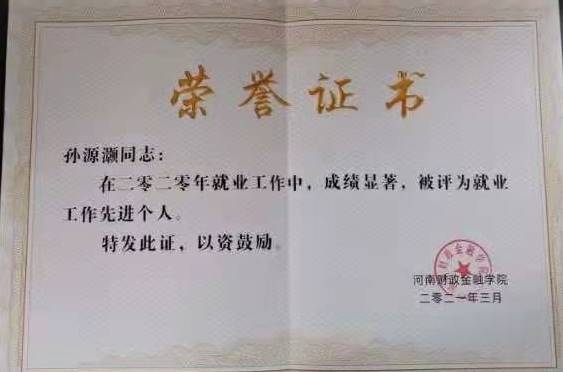 荣誉证书
孙源灏同志：
在二零二零年就业工作中，成绩显著，被评为就业
工作先进个人。
特发此证，以资鼓励。
河南财政金融学院
二零二一年三月